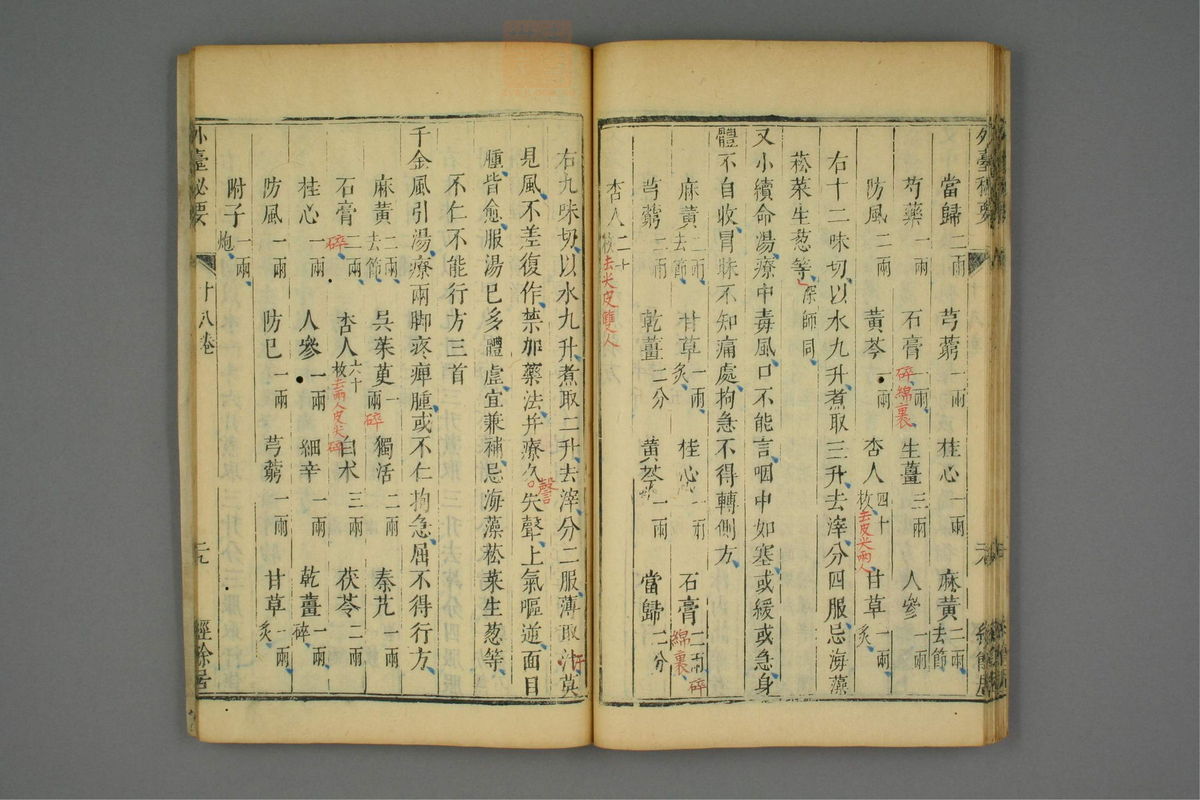 當歸二兩 芎藭一兩 桂心一兩 麻黃二兩去節
芍藥一兩 石膏一兩碎綿裹 生薑三兩 人參一兩
防風二兩 黃芩一兩 杏人四十枚去皮尖兩人 甘草一兩炙
右十二味切以水九升煮取三升去滓分四服忌海藻
菘菜生葱等深師同
又小續命湯療中毒風口不能言咽中如塞或緩或急身
體不自收冒昧不知痛處拘急不得轉側方
麻黃二兩去節 甘草一兩炙 桂心一兩 石膏二兩碎綿裹
芎藭二兩 乾薑二分 黃芩一兩 當歸二分
杏人二十枚去尖皮雙人
右九味切以水九升煮取二升去滓分二服薄取汗莫
見風不差復作禁如藥法并療久失聲上氣嘔逆面目
腫皆愈服湯已多體虛宜兼補忌海藻菘菜生葱等
不仁不能行方三首
千金風引湯療兩脚疼痺腫或不仁拘急屈不得行方
麻黃二兩去節 吳茱萸一兩碎 獨活二兩 秦艽一兩
石膏二兩碎 杏人六十枚去兩人皮尖碎 白朮三兩 茯苓二兩
桂心一兩 人參一兩 細辛一兩 乾薑一兩碎
防風一兩 防已一兩 芎藭一兩 甘草一兩炙
附子一兩炮
外臺秘要 十八卷 二九 經餘居